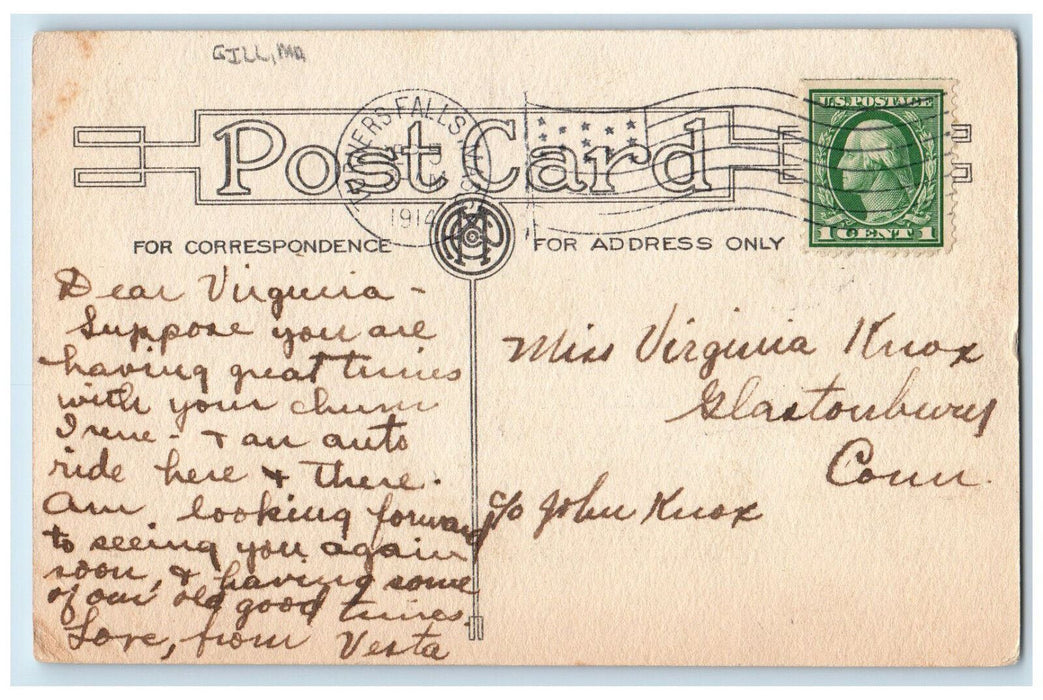 GILL, MA
Post Card
TURNERS FALLS MASS.
1914
U.S. POSTAGE
1 CENT 1
FOR CORRESPONDENCE
FOR ADDRESS ONLY
Dear Virginia -
Suppose you are
having great times
with your chum
Irene - + an auto
ride here + there.
Am looking forward
to seeing you again
soon, & having some
of our old good times.
Love, from Vesta
Miss Virginia Knox
Glastonbury
Conn.
c/o John Knox